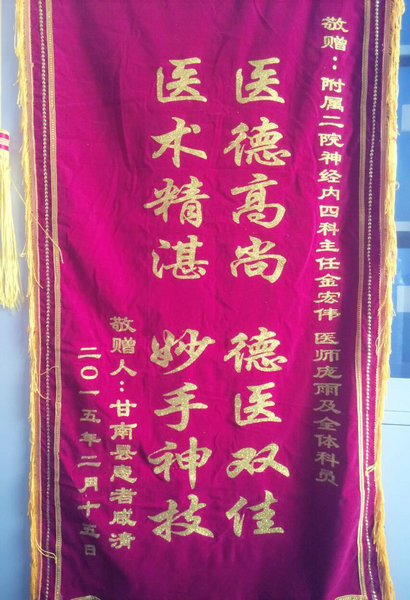 敬赠：附属二院神经内四科主任金宏伟 医师庞雨及全体科员
医德高尚 德医双佳
医术精湛 妙手神技
敬赠人：甘南县患者咸清
二〇一五年二月十五日